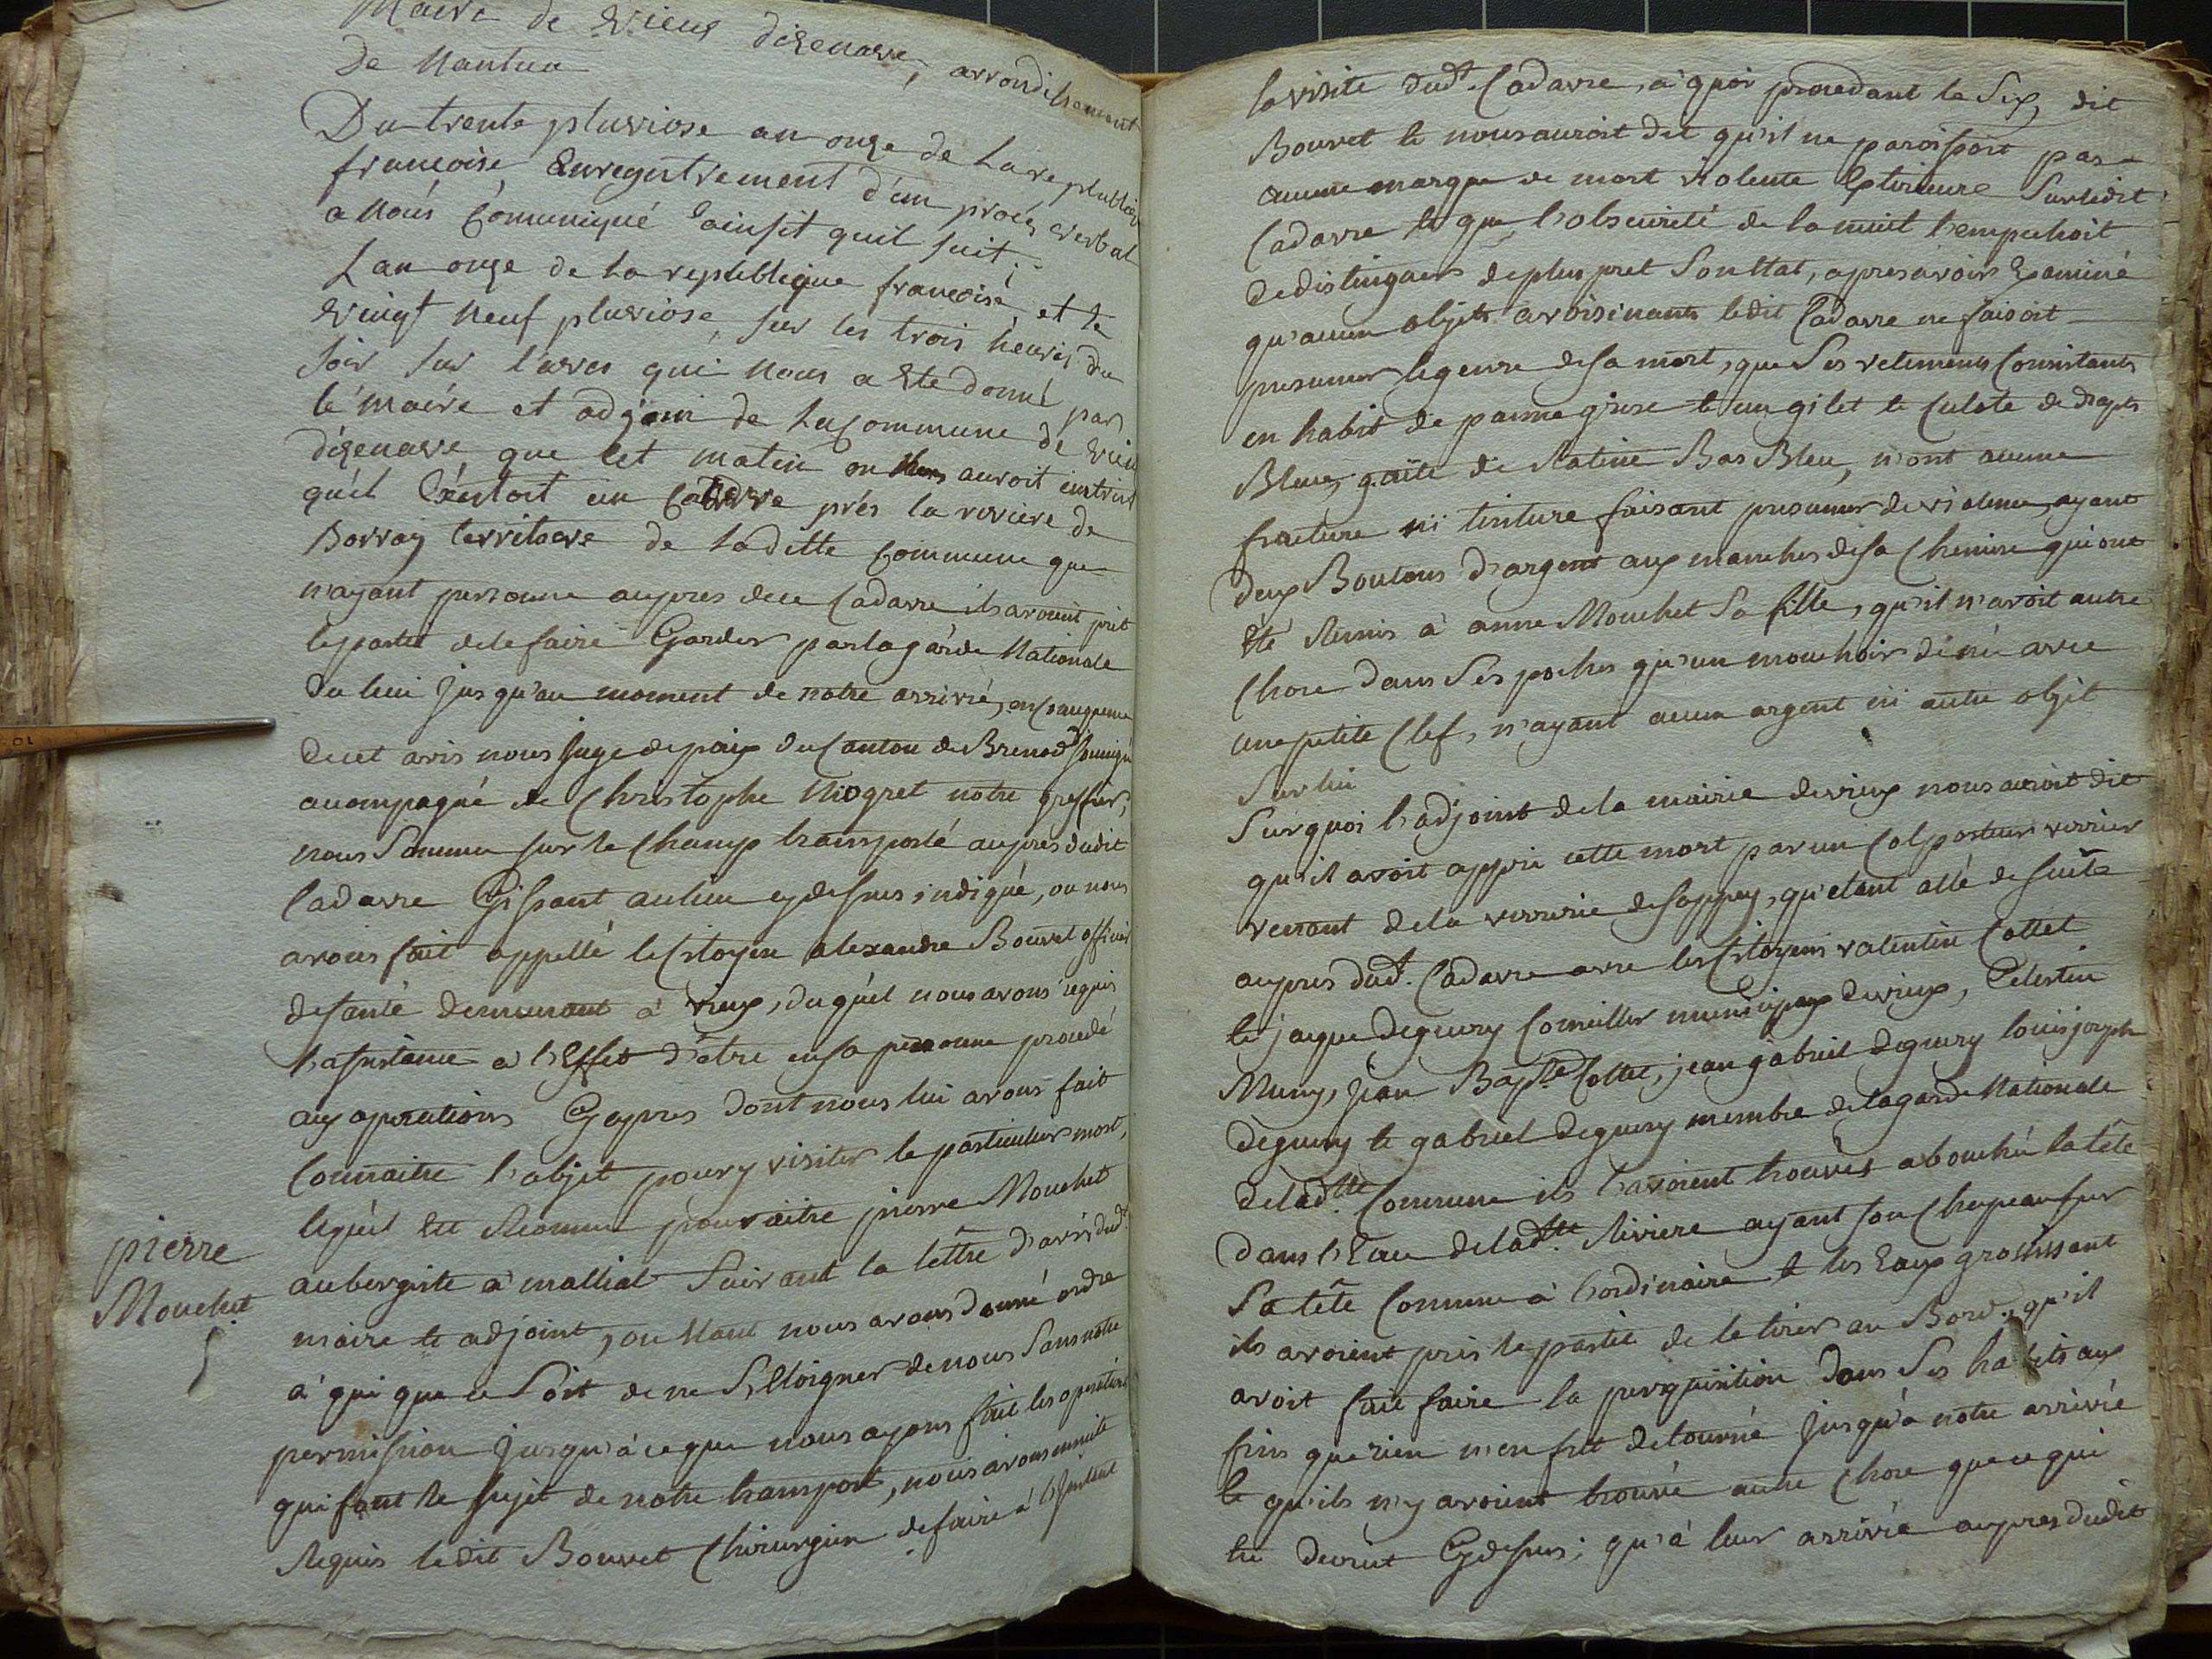 Maire de Vieux dizenave, arrondissement
de Nantua
Du trente pluviose an onze de la republiq
francoise Enregistrement d'un procés verbal
a Nous Comuniqué Cainsit quil suit;
Lan onze de la republique francoise, et le
vingt neuf pluviose, sur les trois heures du
soir sur l'aves qui nous a Eté donné par
le maire et adjoin de la Commune de vieu
dizenave que Cet matin on auroit instruit
quil Existoit un Cadavre prés la riviere de
Borray territoire de laditte Commune que
n'ayant personne aupres de ce Cadavre ils avoient prit
le partit de le faire Garder par la gárde Nationale
du lieu jusqu'au moment de notre arrivée, en Consequence
de cet avis nous Juge de paix du Canton de Brenod Soussigné
accompagné de Christophe Niogret notre greffier,
nous Sommes sur le Champ transporté aupres dudit
Cadavre Gissant au lieu cydessus indiqué, ou nous
avons fait appellé le Citoyen alexandre Bouvet officier
de santé demeurant à vieux, duquel nous avons requis
l'assistance a l'Effet d'être en sa personne procedé
aux operations Cyapres dont nous lui avons fait
Connaitre l'objet pour y visiter le particulier mort,
lequel Est Reconnu pour aitre pierre Mouchet
pierre
Mouchet
aubergiste à mattiat Suivant la lettre d'avis dud.t
maire et adjoint, ou Etant nous avons donné ordre
à qui que ce Soit de ne S'Eloigner de nous Sans notre
permission jusqu'à ce que nous ayons fait les operations
qui font le sujet de notre transport, nous avons ensuite
Requis ledit Bouvet Chirurgien de faire à l'instant
la visite dud.t Cadavre, a quoi procedant le Sieur dit
Bouvet et nous auroit dit qu'il ne paroissoit pas
aucune marque de mort violente Exterieure Sur ledit
Cadavre et que l'obscurité de la nuit l'empechoit
de distinguer de plus pret Son Etat, apres avoir Examiné
qu'aucun objets avoisinants ledit Cadavre ne faisoit
presumer le genre de sa mort, que Ses vetements Consistants
en habit de panne grise et un gilet et Culote de draps
Bleux, gaite de Ratine Bas Bleu, n'ont aucune
fracture ni tinture faisant presumer de violence, ayant
deux Boutons d'argent aux manches de sa Chemise qui ont
Eté Remis à anne Mouchet Sa fille, qu'il n'avoit autre
Chose dans Ses poches qu'un mouchoir avec
une petite Clef, n'ayant aucun argent ni autre objet
Sur lui
Surquoi l'adjoint de la mairie de vieux nous auroit dit
qu'il avoit appris cette mort par un Colporteur verrier
venant de la verrerie de sappey, qu'etant allé de suite
aupres dud.t Cadavre avec les Citoyens valentin Cottet
et jaque Deguery Conseiller municipaux de vieux, Celestin
Muny, jean Bap.te Cottet, jean gabriel Deguery louis joseph
Deguery et gabriel Deguery membre de la garde Nationale
de lad.tte Commune ils l'avoient trouvés abouché la tête
dans l'Eau de lad.tte Riviere ayant son Chapeau sur
Sa tête Comme à l'ordinaire et les Eaux grossissant
ils avoient pris le partie de le tirer au Bord, qu'il
avoit fait faire la perquisition dans Ses habits aux
fins que rien n'en fut detourné jusqu'à notre arrivée
et qu'ils n'y avoient trouvé autre Chose que ce qui
est decrit Cydessus; qu'à leur arrivée aupres dudit